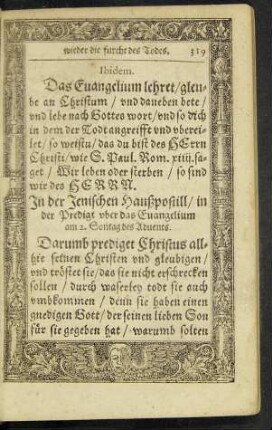 wieder die furcht des Todes. 319
Ibidem.
Das Euangelium lehret/gleu-
be an Christum / vnd daneben bete /
vnd lebe nach Gottes wort/vnd so dich
in dem der Todt angreifft vnd vberei-
let / so weistu/das du bist des HErrn
Christi/wie S. Paul. Rom. xiiij.sa-
get / Wir leben oder sterben / so sind
wir des HERRN.
In der Jenischen Haußpostill / in
der Predigt vber das Euangelium
am 2. Sontag des Aduents.
Darumb prediget Christus all-
hie seinen Christen vnd gleubigen/
vnd tröstet sie/das sie nicht erschrecken
sollen / durch waserley todt sie auch
vmbkommen / denn sie haben einen
gnedigen Gott/der seinen lieben Son
für sie gegeben hat / warumb solten